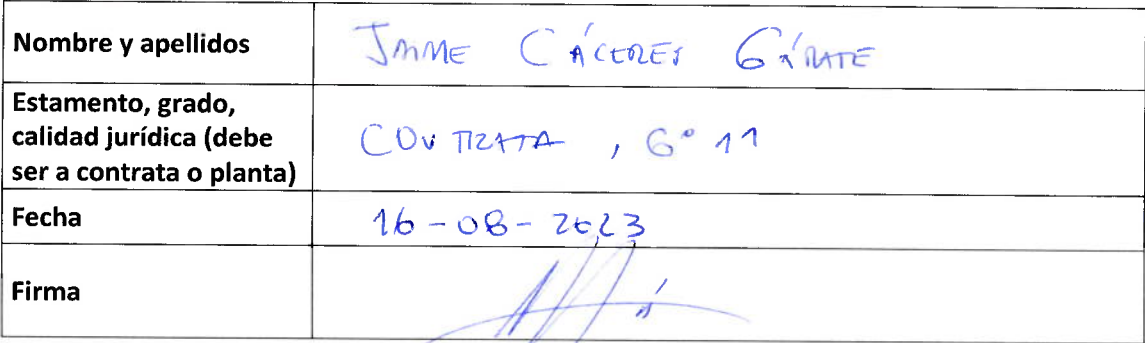 Nombre y apellidos
JAIME CÁCERES GÁRATE
Estamento, grado,
calidad jurídica (debe
ser a contrata o planta)
CONTRATA, G° 11
Fecha
16-08-2023
Firma